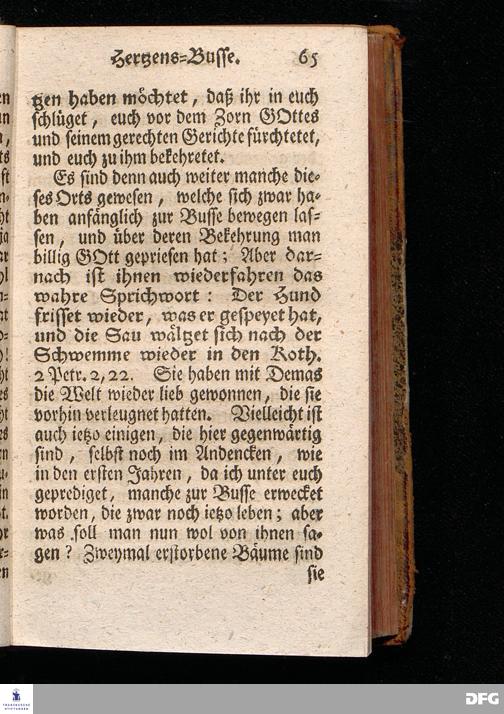 Hertzens-Busse. 65
tzen haben möchtet, daß ihr in euch
schlüget, euch vor dem Zorn GOttes
und seinem gerechten Gerichte fürchtetet,
und euch zu ihm bekehretet.
Es sind denn auch weiter manche die-
ses Orts gewesen, welche sich zwar ha-
ben anfänglich zur Busse bewegen las-
sen, und über deren Bekehrung man
billig GOtt gepriesen hat; Aber dar-
nach ist ihnen wiederfahren das
wahre Sprichwort: Der Hund
frisset wieder, was er gespeyet hat,
und die Sau wältzet sich nach der
Schwemme wieder in den Koth.
2 Petr. 2, 22. Sie haben mit Demas
die Welt wieder lieb gewonnen, die sie
vorhin verleugnet hatten. Vielleicht ist
auch ietzo einigen, die hier gegenwärtig
sind, selbst noch im Andencken, wie
in den ersten Jahren, da ich unter euch
geprediget, manche zur Busse erwecket
worden, die zwar noch ietzo leben; aber
was soll man nun wol von ihnen sa-
gen? Zweymal erstorbene Bäume sind
sie
FRANCKESCHE
STIFTUNGEN
DFG